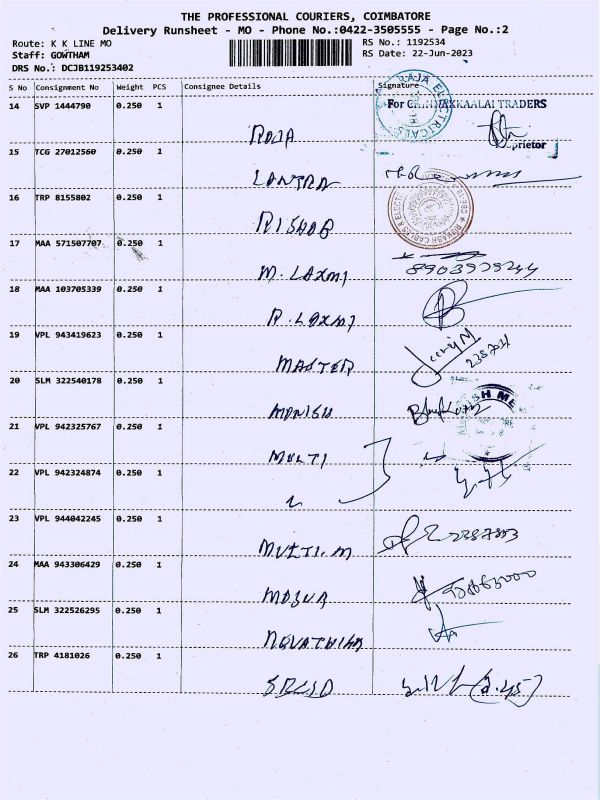 THE PROFESSIONAL COURIERS, COIMBATORE
Delivery Runsheet - MO - Phone No.:0422-3505555 - Page No.:2
Route: K K LINE MO
RS No.: 1192534
Staff: GOWTHAM
RS Date: 22-Jun-2023
DRS No.: DCJB119253402
S No Consignment No Weight PCS Consignee Details Signature
14 SVP 1444790 0.250 1
RAJA ELECTRICALS
For CHINNAKKAALAI TRADERS
ROJA
prietor
15 TCG 27012560 0.250 1
LANTRA
16 TRP 8155802 0.250 1
RISHAB
17 MAA 571507707 0.250 1
M. LAXMI
18 MAA 103705339 0.250 1
R. LAXMI
19 VPL 943419623 0.250 1
MASTER
20 SLM 322540178 0.250 1
MONISH
21 VPL 942325767 0.250 1
MULTI
22 VPL 942324874 0.250 1
23 VPL 944042245 0.250 1
MULTI. M
24 MAA 943306429 0.250 1
25 SLM 322526295 0.250 1
26 TRP 4181026 0.250 1